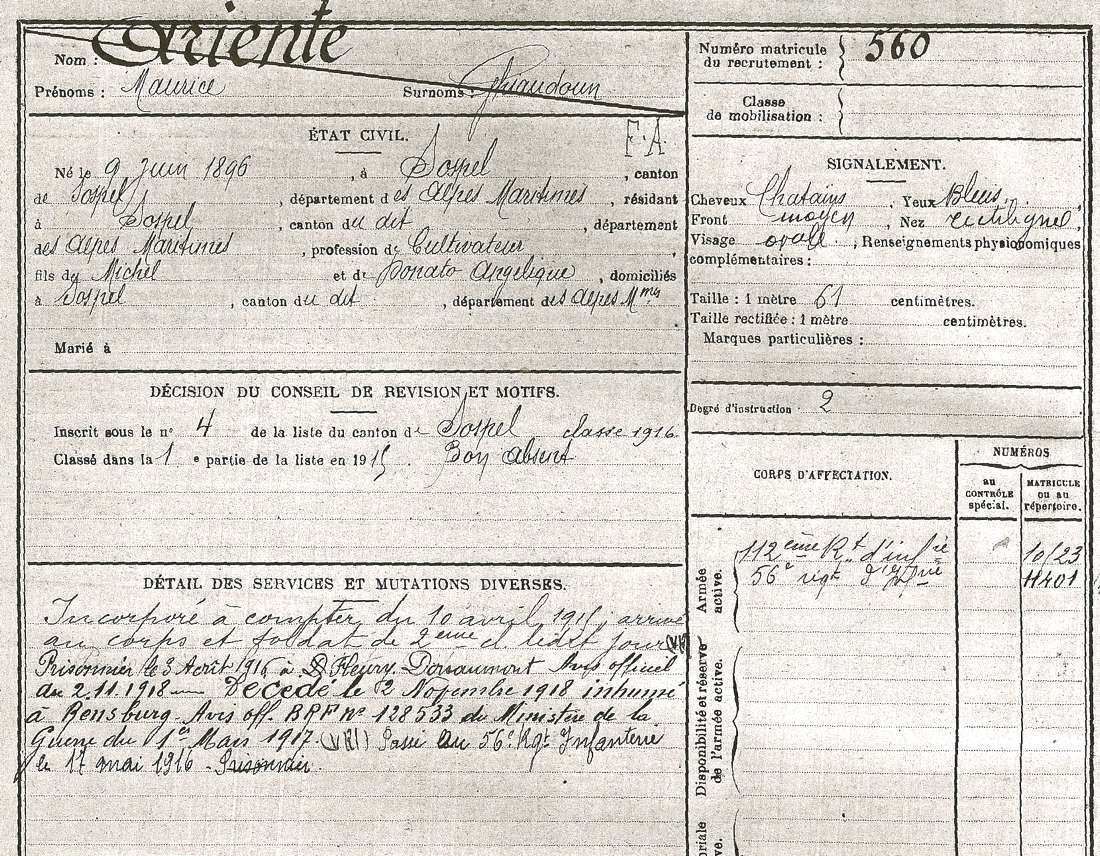 Nom : Oriente
Prénoms : Maurice Surnoms : Ghiaudoun
ÉTAT CIVIL. F.A.
Né le 9 Juin 1896, à Sospel, canton
de Sospel, département des Alpes Maritimes, résidant
à Sospel, canton du dit département
des Alpes Maritimes, profession de Cultivateur,
fils du Michel et de Donato Angelique, domiciliés
à Sospel, canton du dit, département des Alpes Mmes
Marié à
DÉCISION DU CONSEIL DE REVISION ET MOTIFS.
Inscrit sous le n° 4 de la liste du canton de Sospel classe 1916.
Classé dans la 1 e partie de la liste en 1915. Bon absent
DÉTAIL DES SERVICES ET MUTATIONS DIVERSES.
Incorporé à compter du 10 avril 1915, arrivé
au corps et soldat de 2ème cl ledit jour
Prisonnier le 3 Août 1916 à Fleury-Douaumont Avis officiel
du 2.11.1918 Décédé le 2 Novembre 1918 inhumé
à Rensburg. Avis off. BRF n° 128533 du Ministère de la
Guerre du 1er Mars 1917. Passé au 56e Rgt Infanterie
le 17 mai 1916 - Prisonnier
Numéro matricule du recrutement : 560
Classe de mobilisation :
SIGNALEMENT.
Cheveux Chatains, Yeux Bleus
Front moyen, Nez rectiligne,
Visage ovale, Renseignements physionomiques
complémentaires :
Taille : 1 mètre 61 centimètres.
Taille rectifiée : 1 mètre centimètres.
Marques particulières :
Degré d'instruction : 2
CORPS D'AFFECTATION.
NUMÉROS
au CONTRÔLE spécial.
MATRICULE ou au répertoire.
Armée active.
112ème Rt d'infie 10123
56e régt d'Infrie 11401
Disponibilité et réserve de l'armée active.